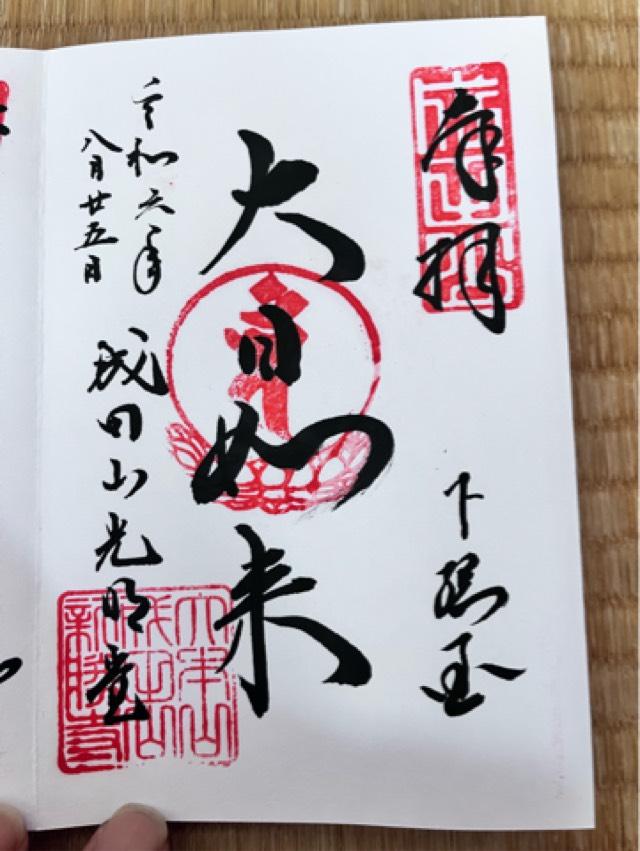 奉拝
下総国
大日如来
令和六年
八月廿五日
成田山光明堂
成田山
大本山
成田山
新勝寺